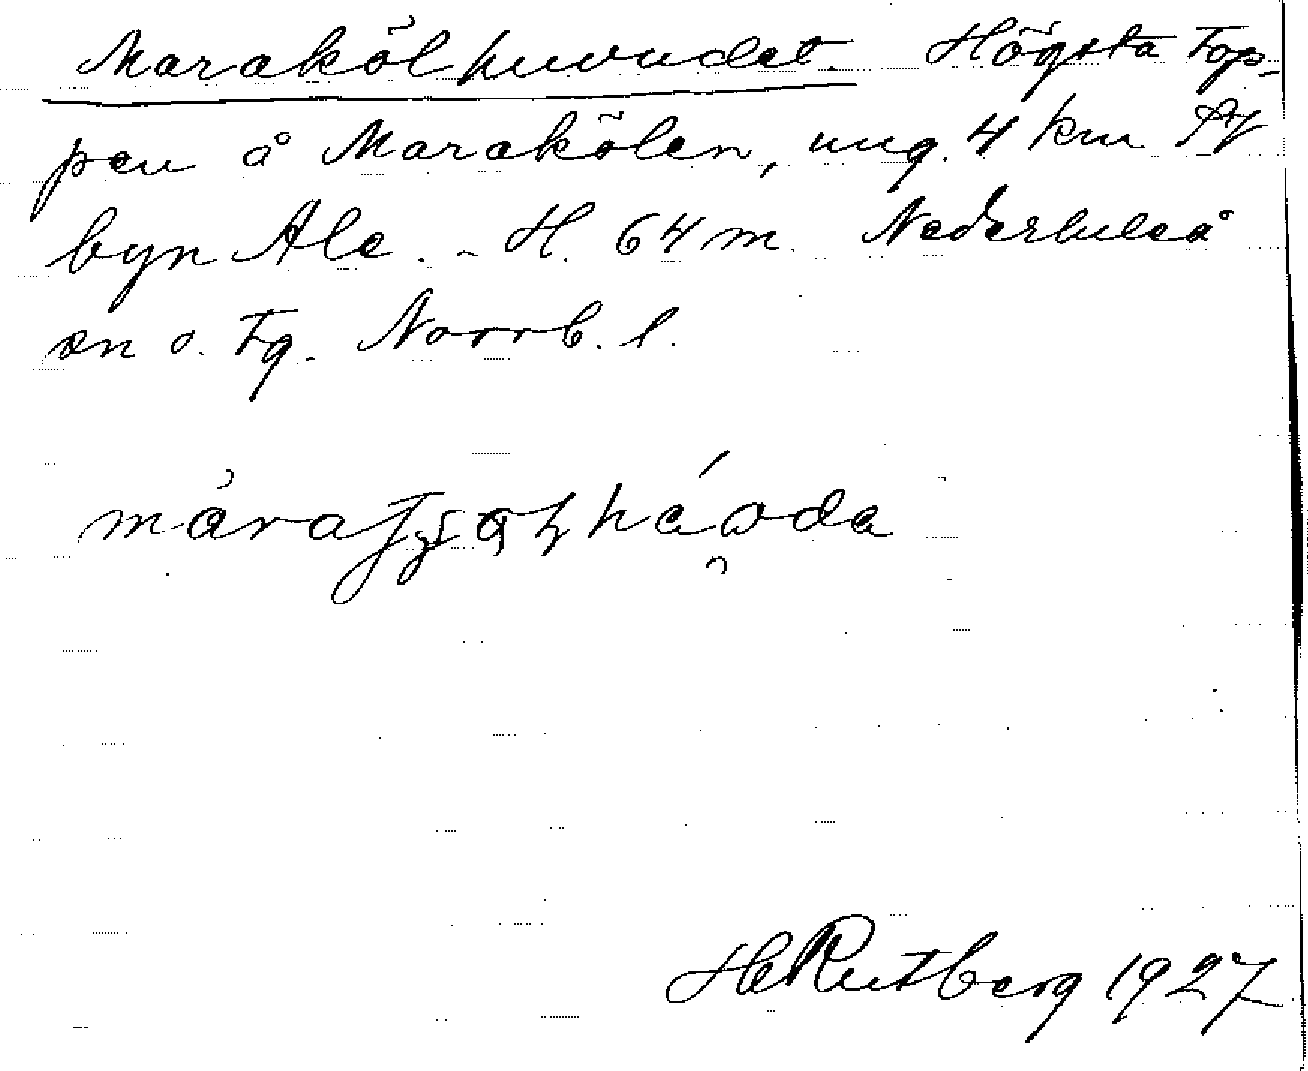 Marakölhuvudet. Högsta top-
pen å Marakölen, ung. 4 km
byn Ale. - H. 64 m. Nederluleå
sn o. tg. Norrb. l.
HRutberg 1927